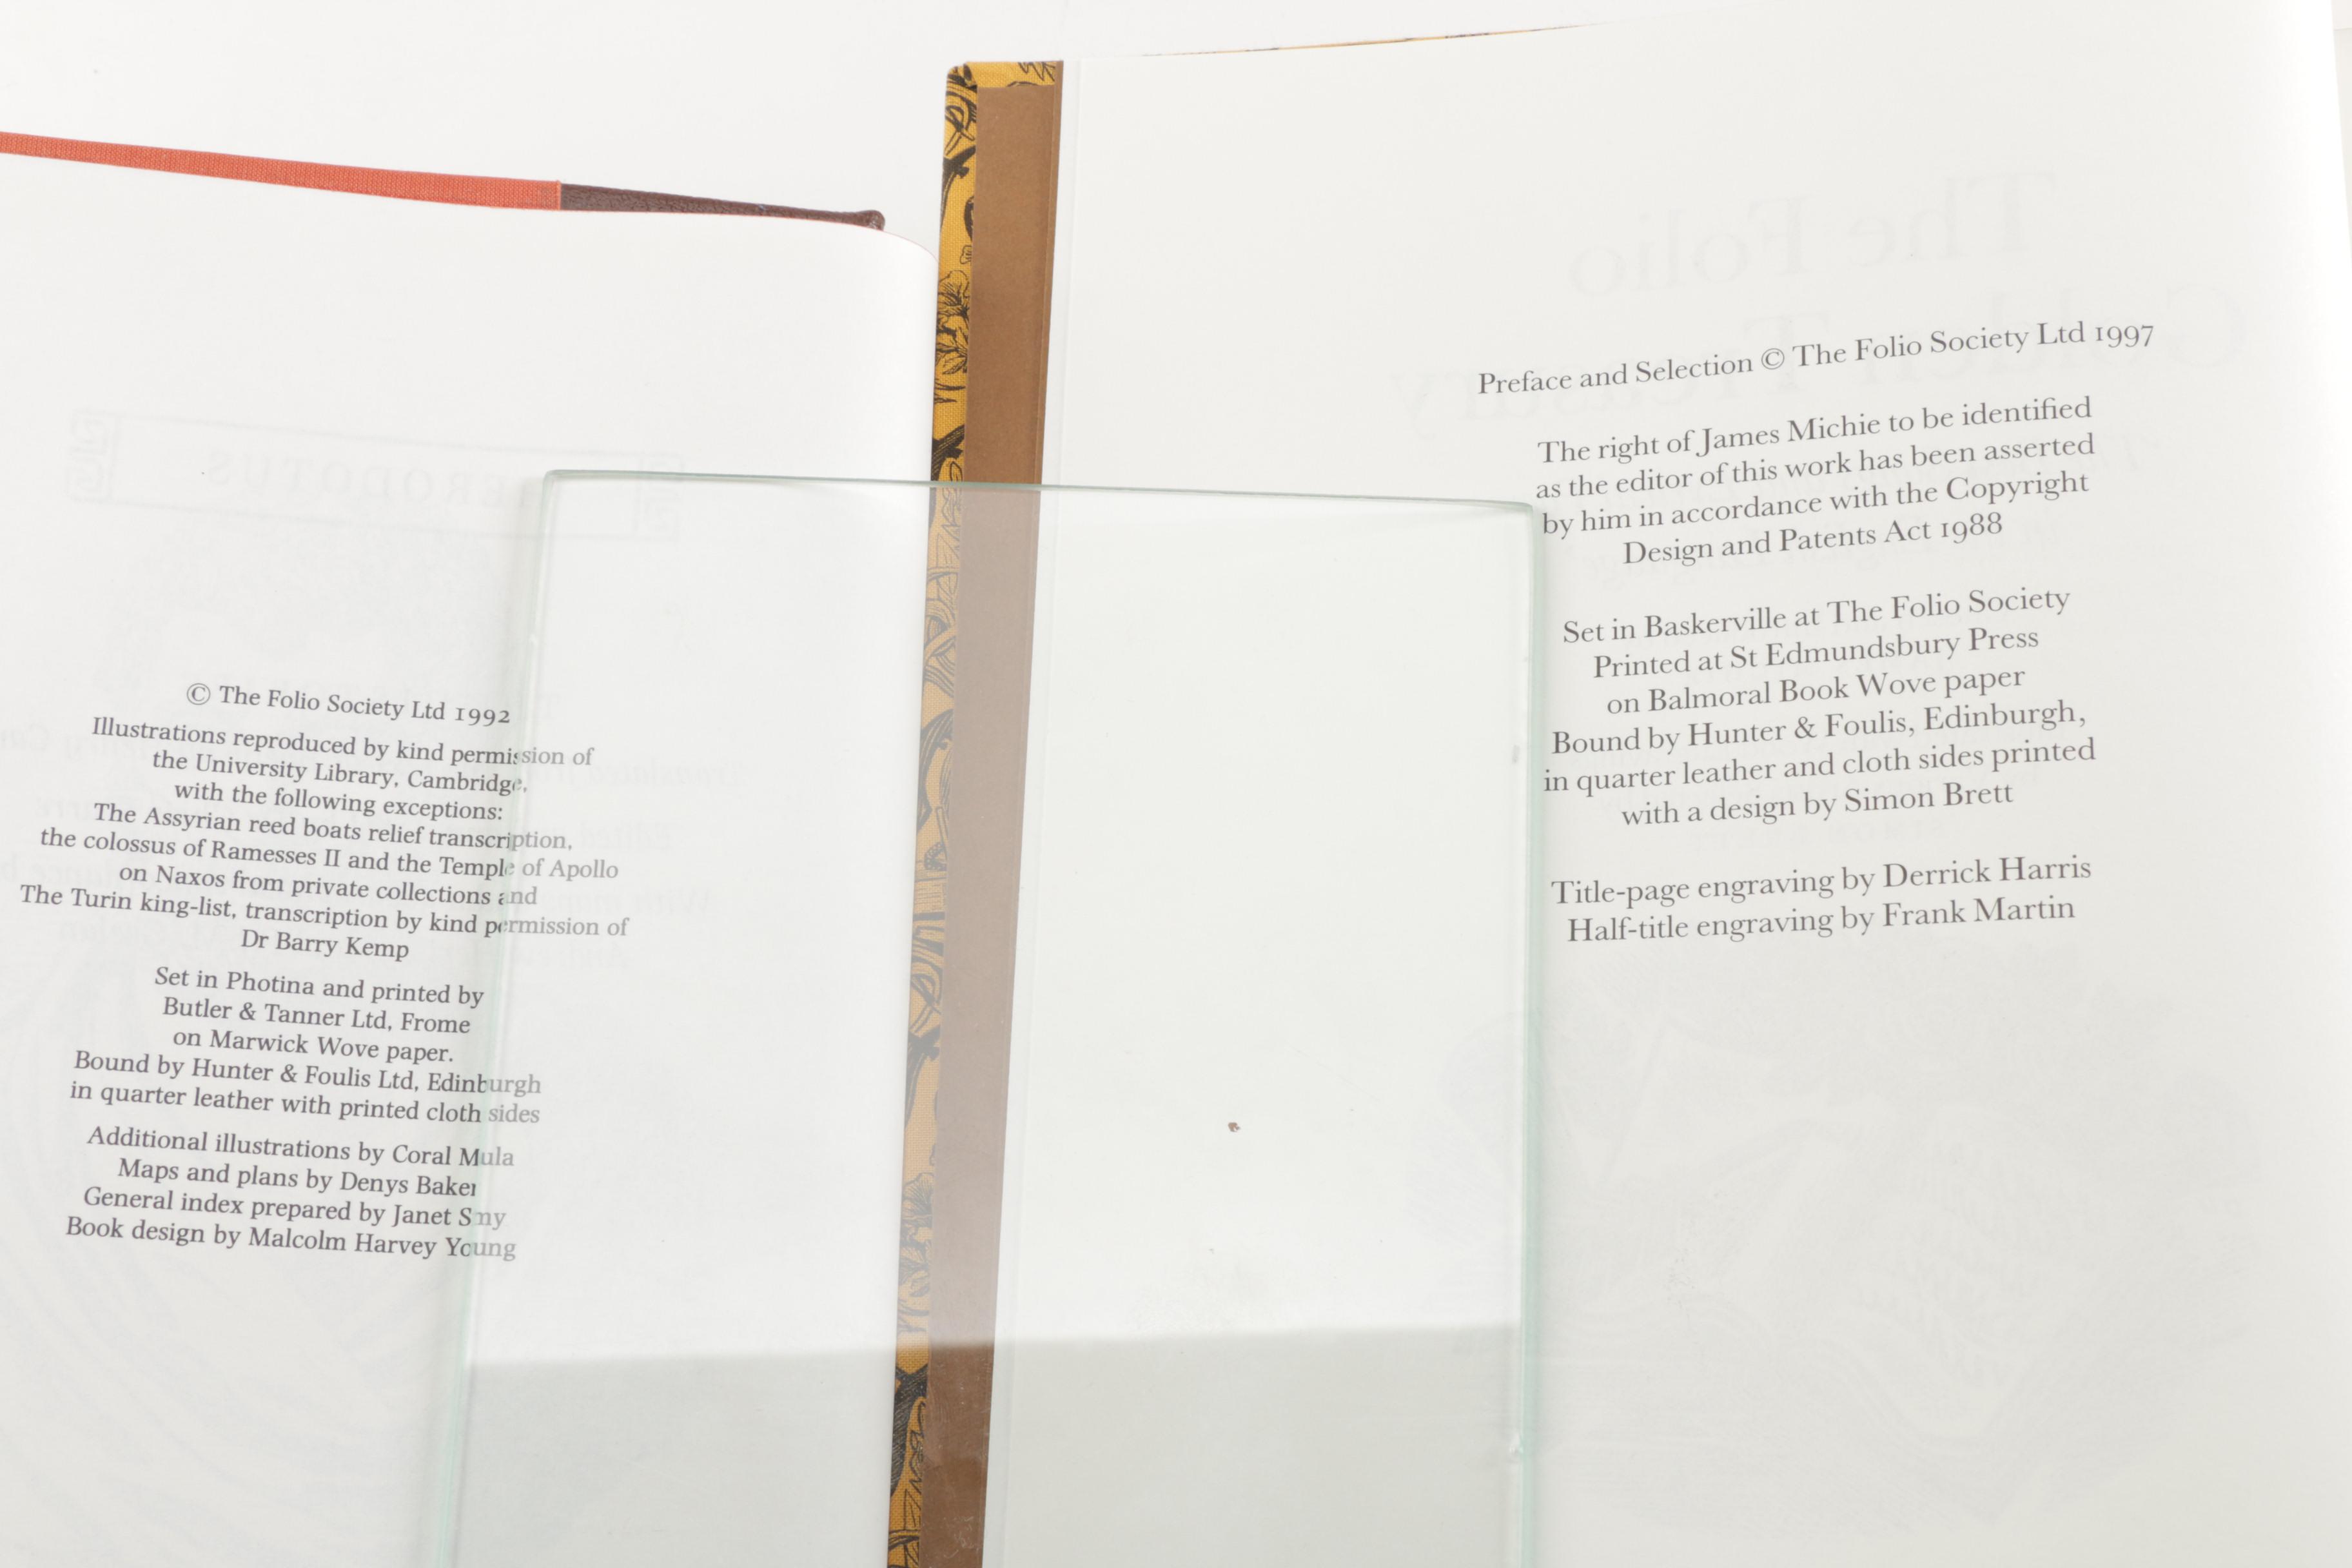 © The Folio Society Ltd 1992
Illustrations reproduced by kind permission of
the University Library, Cambridge,
with the following exceptions:
The Assyrian reed boats relief transcription,
the colossus of Ramesses II and the Temple of Apollo
on Naxos from private collections and
The Turin king-list, transcription by kind permission of
Dr Barry Kemp
Set in Photina and printed by
Butler & Tanner Ltd, Frome
on Marwick Wove paper.
Bound by Hunter & Foulis Ltd, Edinburgh
in quarter leather with printed cloth sides
Additional illustrations by Coral Mula
Maps and plans by Denys Baker
General index prepared by Janet Smy
Book design by Malcolm Harvey Young
The Folio
Preface and Selection © The Folio Society Ltd 1997
The right of James Michie to be identified
as the editor of this work has been asserted
by him in accordance with the Copyright
Design and Patents Act 1988
Set in Baskerville at The Folio Society
Printed at St Edmundsbury Press
on Balmoral Book Wove paper
Bound by Hunter & Foulis, Edinburgh,
in quarter leather and cloth sides printed
with a design by Simon Brett
Title-page engraving by Derrick Harris
Half-title engraving by Frank Martin